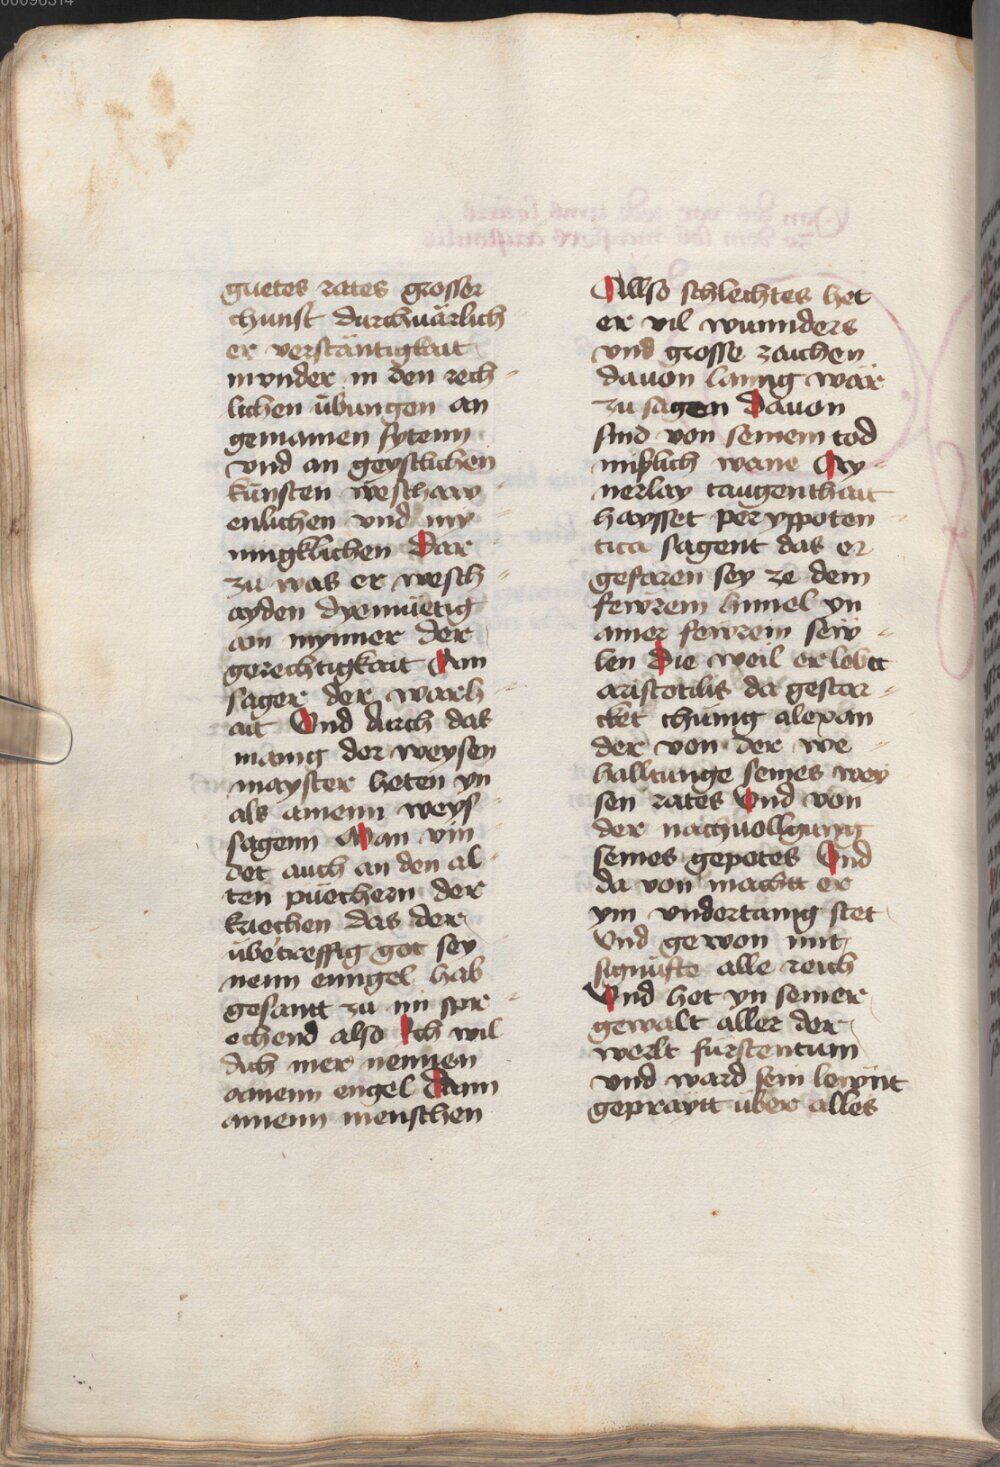 guetes rates grosser
chunst durchuärlich
er verstäntigkait
mynder in den rech-
lichen übungen an
gemainen sytenn
vnd an geystlichen
künsten weschaw-
enlichen vnd my-
ningklichen Dar
zu was er wesch-
ayden dyemüetig
ain mynner der
gerechtigkait Ain
sager der warh-
ait Vnd durch das
mainig der weysen
mayster heten yn
als ainenn weys-
sagenn Man vin-
det auch an den al-
ten püechern der
kriechen das der
übetreffig got sey
nenn enngel hab
gesantt zu im spr-
echend also Ich wil
dich mer nennen
ainenn engel dann
ainenn menschen
Allso schlechtes het
er vil wunnders
vnd grosse zaichen
dauon lanng wär
zu sagen Dauon
sind von seinem tod
mißlich wane Ay-
nerlay taugenthait
haysset peryppoten-
tica sagent das er
gefaren sey ze dem
fewrem himel yn
ainer fewrein sew-
len Die weil er lebtt
aristotilis da gestar-
cket chünig alexan
der von der we-
halltunge seines wey
sen rates Vnd von
der nachuollgung
seines gepotes Vnd
da von machtt er
ym vndertanig stet
Vnd gewon mit
signüfte alle reich
Vnd het yn seiner
gewalt aller der
werlt fürstentum
vnd ward sein lewnt
gepraytt über alles